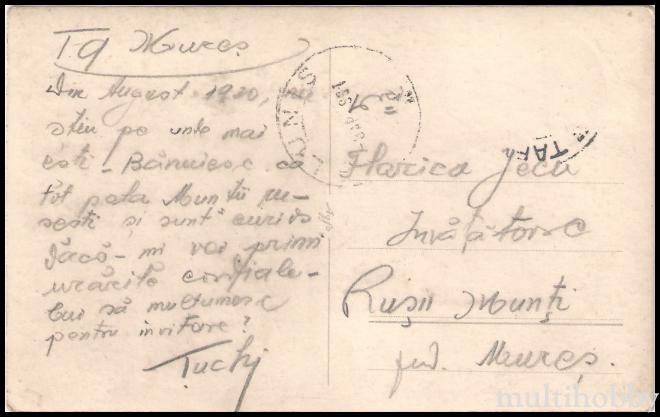 Tg Mureș
Din August 1920, nu
știu pe unde mai
ești - Bănuiesc că
tot
și sunt
Dacă - mi voi primi
urările cordiale -
Cui să mulțumesc
pentru invitare?
Țuchi
Florica Jecu
Învățătoare
Rușii Munți
jud. Mureș.
multihobby